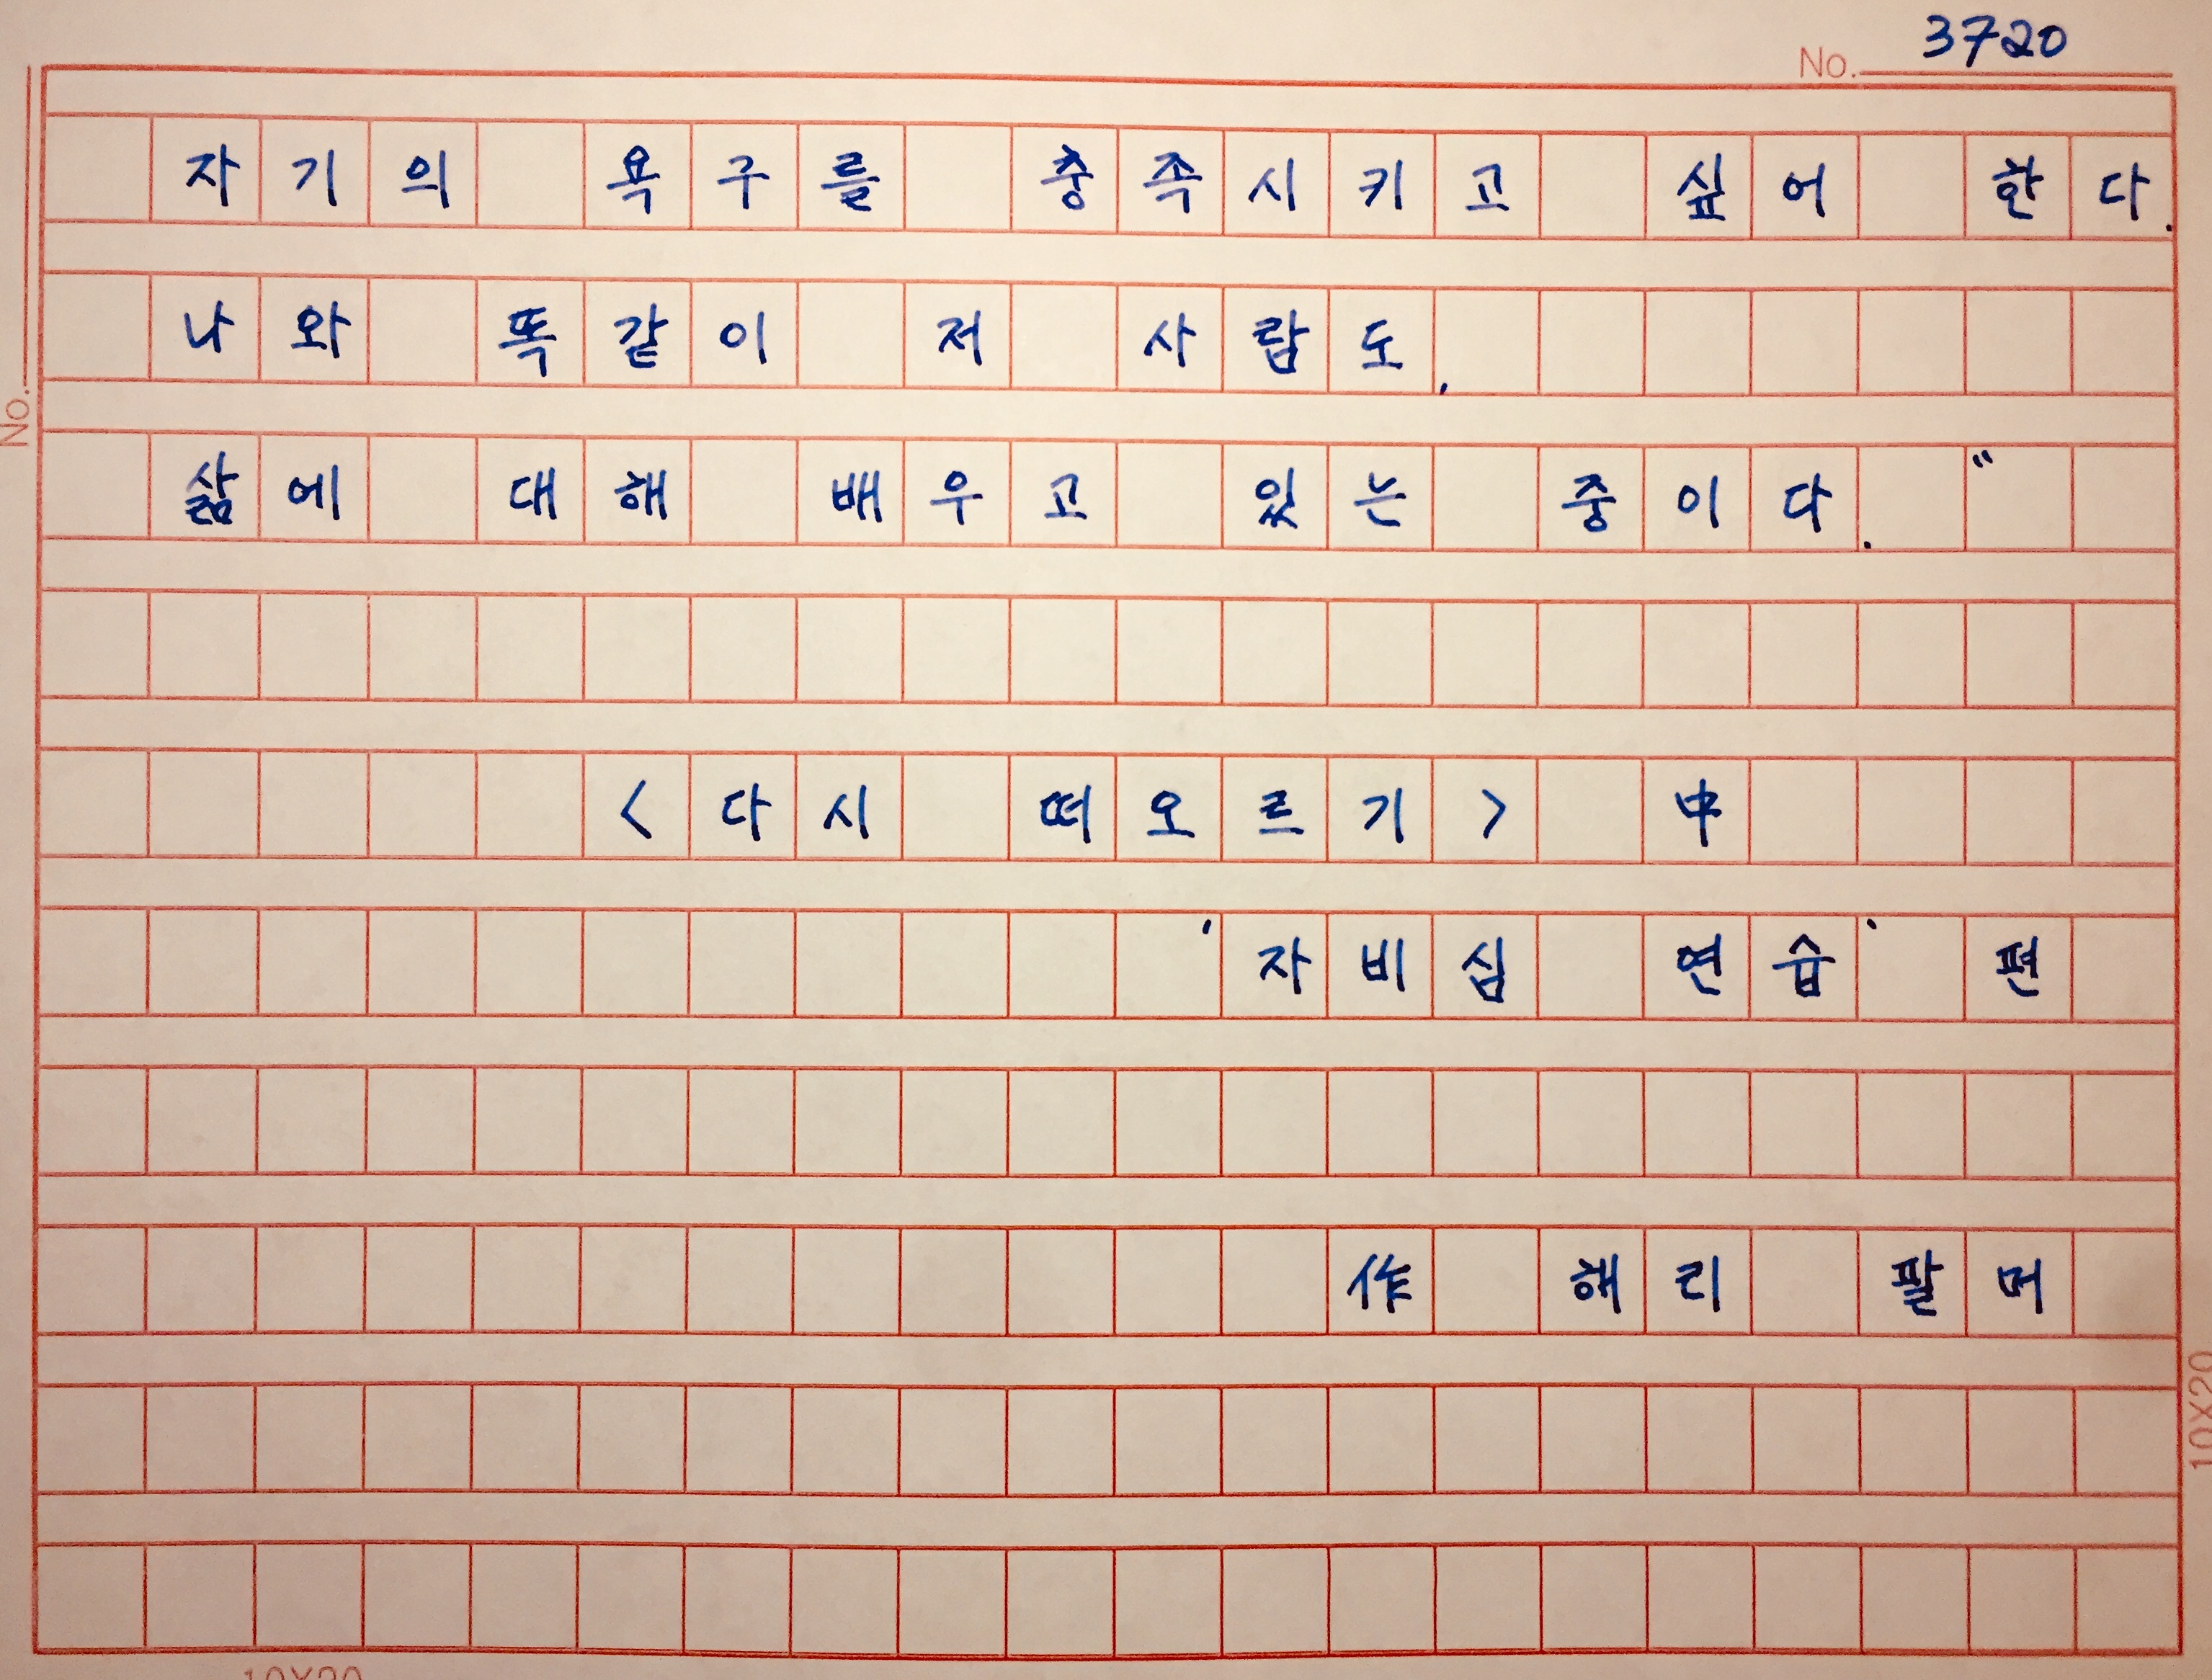 No. 3720
자기의 욕구를 충족시키고 싶어 한다.
나와 똑같이 저 사람도,
삶에 대해 배우고 있는 중이다. "
<다시 떠오르기> 中
'자비심 연습' 편
作 해리 팔머
No.
10X20
10X20